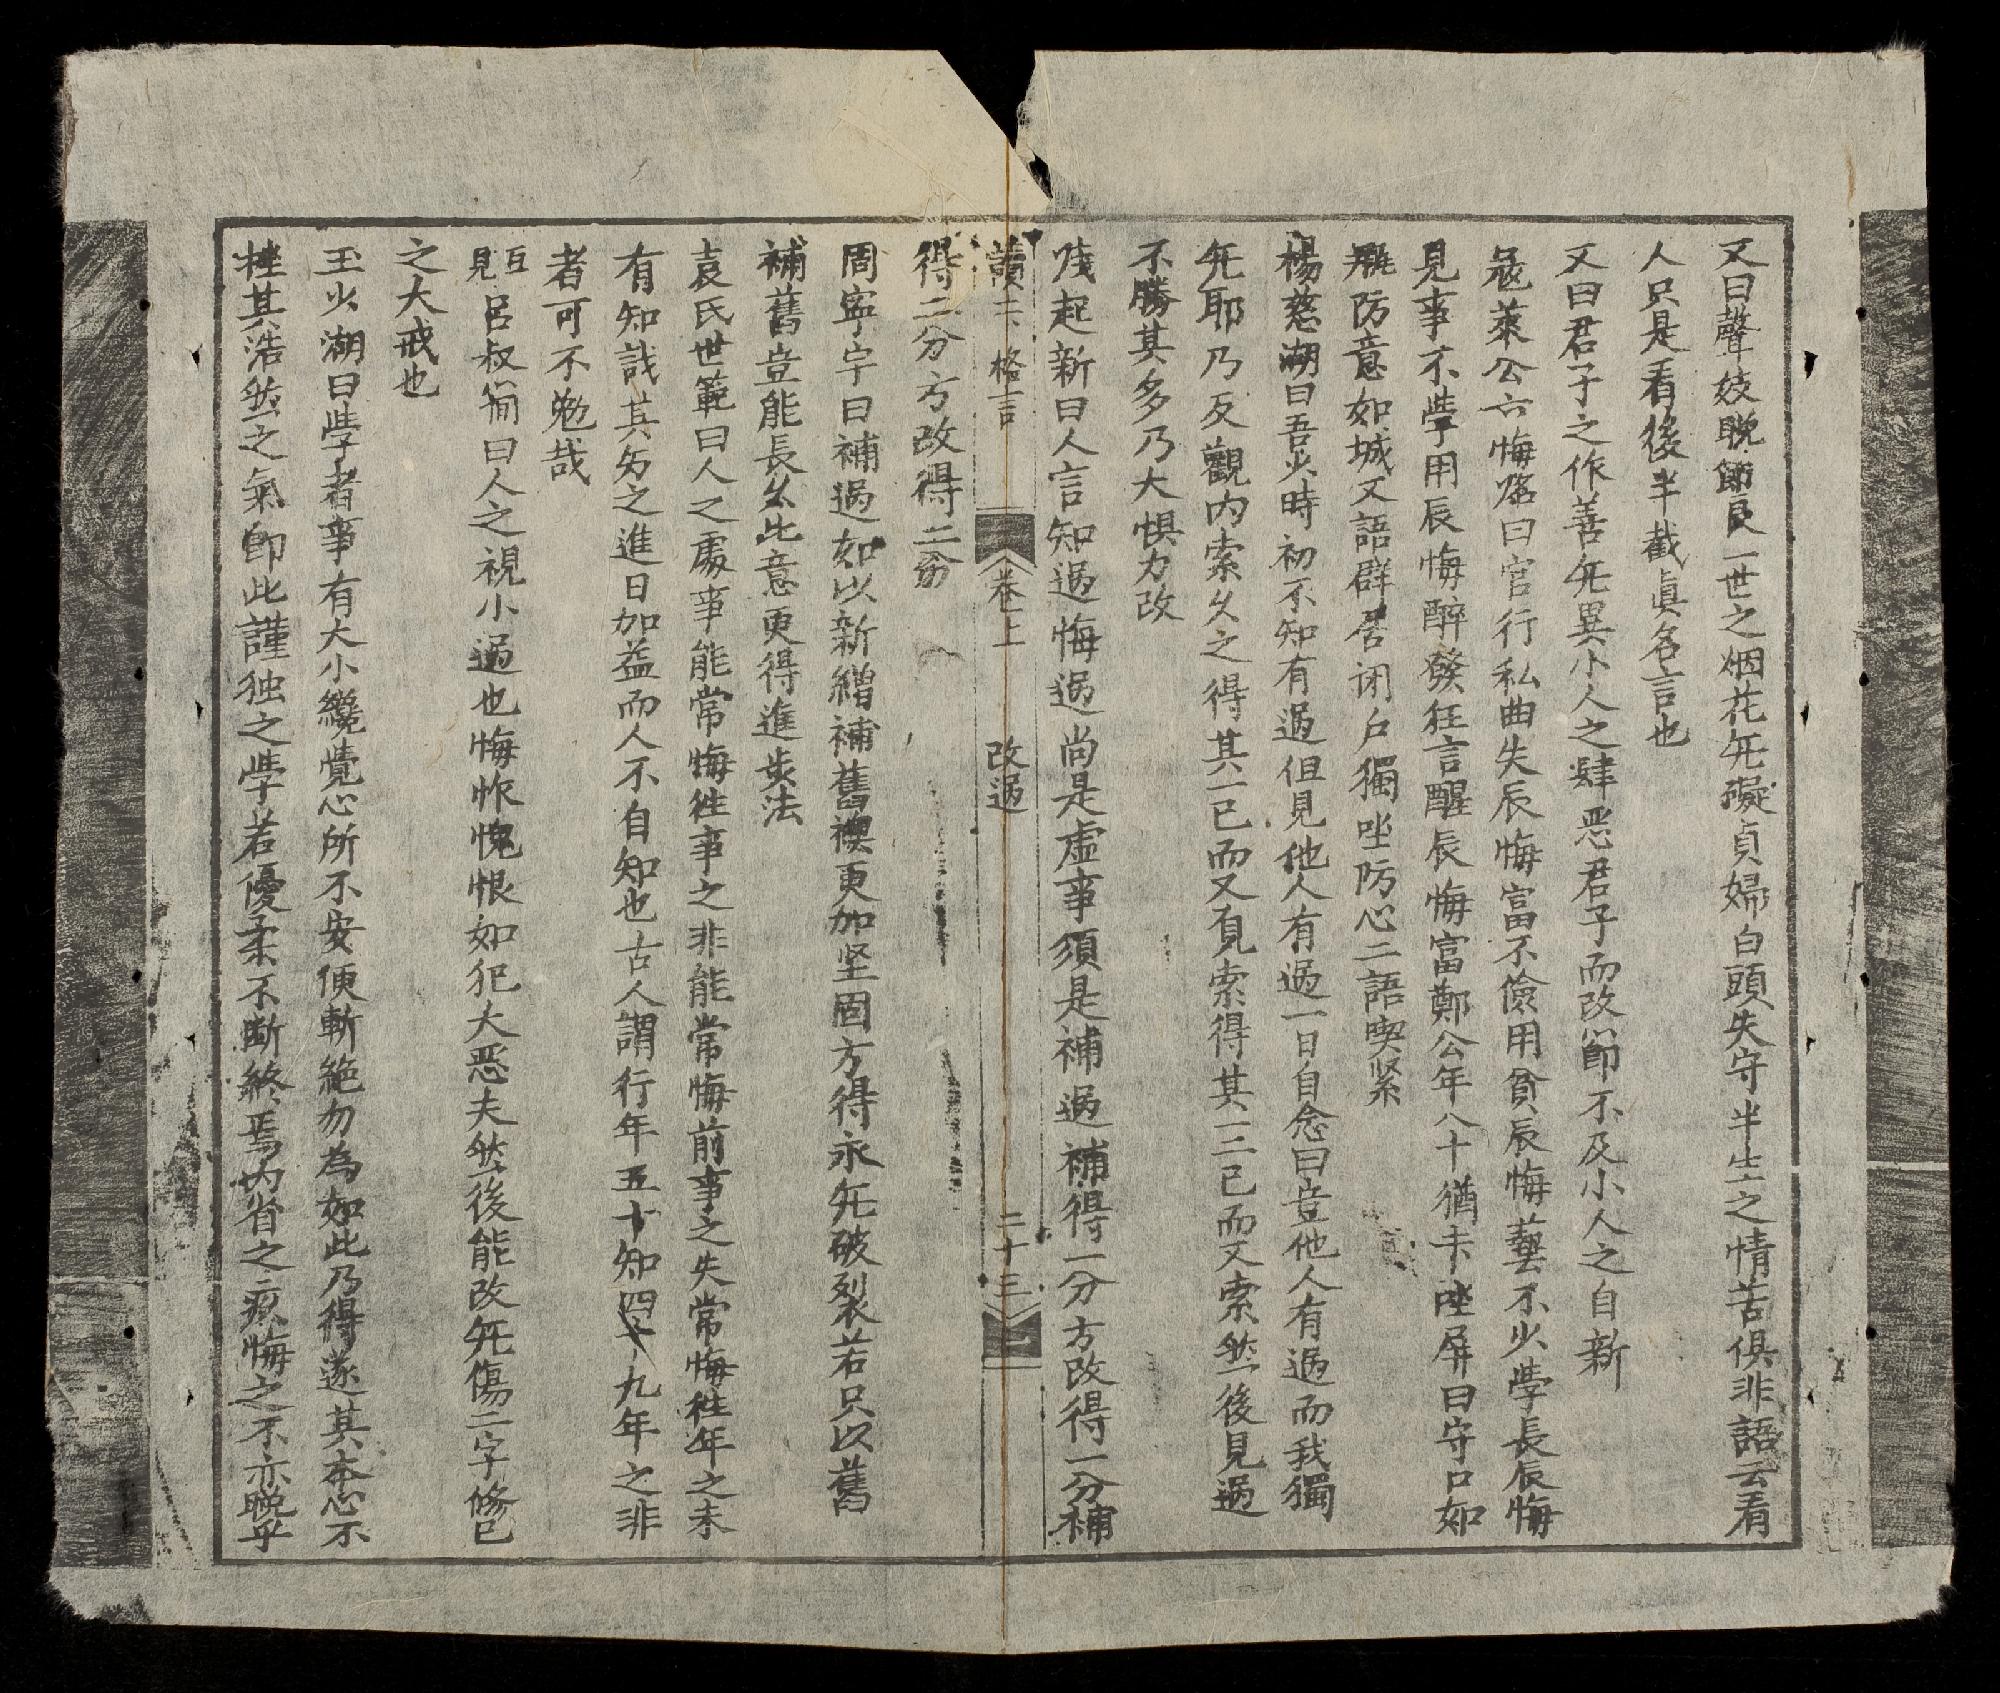 又曰聲妓晩節良一世之烟花旡礙貞婦白頭失守半生之情苦俱非語云看
人只是看後半截眞名言也
又曰君子之作善旡異小人之肆恶君子而改節不及小人之自新
寇萊公六悔銘曰官行私曲失辰悔富不儉用貧辰悔藝不少學長辰悔
見事不學用辰悔醉發狂言醒辰悔富鄭公年八十猶書座屏曰守口如
瓶防意如城又語群居闭户獨坐防心二語喫紧
楊慈湖曰吾少時初不知有過但見他人有過一日自念曰豈他人有過而我獨
旡耶乃反觀内索久之得其一已而又覓索得其二三已而又索然後見過
不勝其多乃大惧力改
起新曰人言知過悔過尚是虚事須是補過補得一分方改得一分補
讀 格言 卷上 改過 二十三
得二分方改得二分
周寧宇曰補過如以新繒補舊襖更加坚固方得永旡破裂若只以舊
補舊豈能長久此意更得進歩法
袁氏世範曰人之處事能常悔徃事之非能常悔前事之失常悔徃年之未
有知識其学之進日加益而人不自知也古人謂行年五十知四十九年之非
者可不勉哉
見 呂叔簡曰人之視小過也悔怍愧恨如犯大恶夫然後能改旡傷二字修已
之大戒也
王少湖曰學者事有大小纔覺心所不安便斬絶勿為如此乃得遂其本心不
挫其浩然之氣即此謹独之學若優柔不断終焉内省之疚悔之不亦晩乎